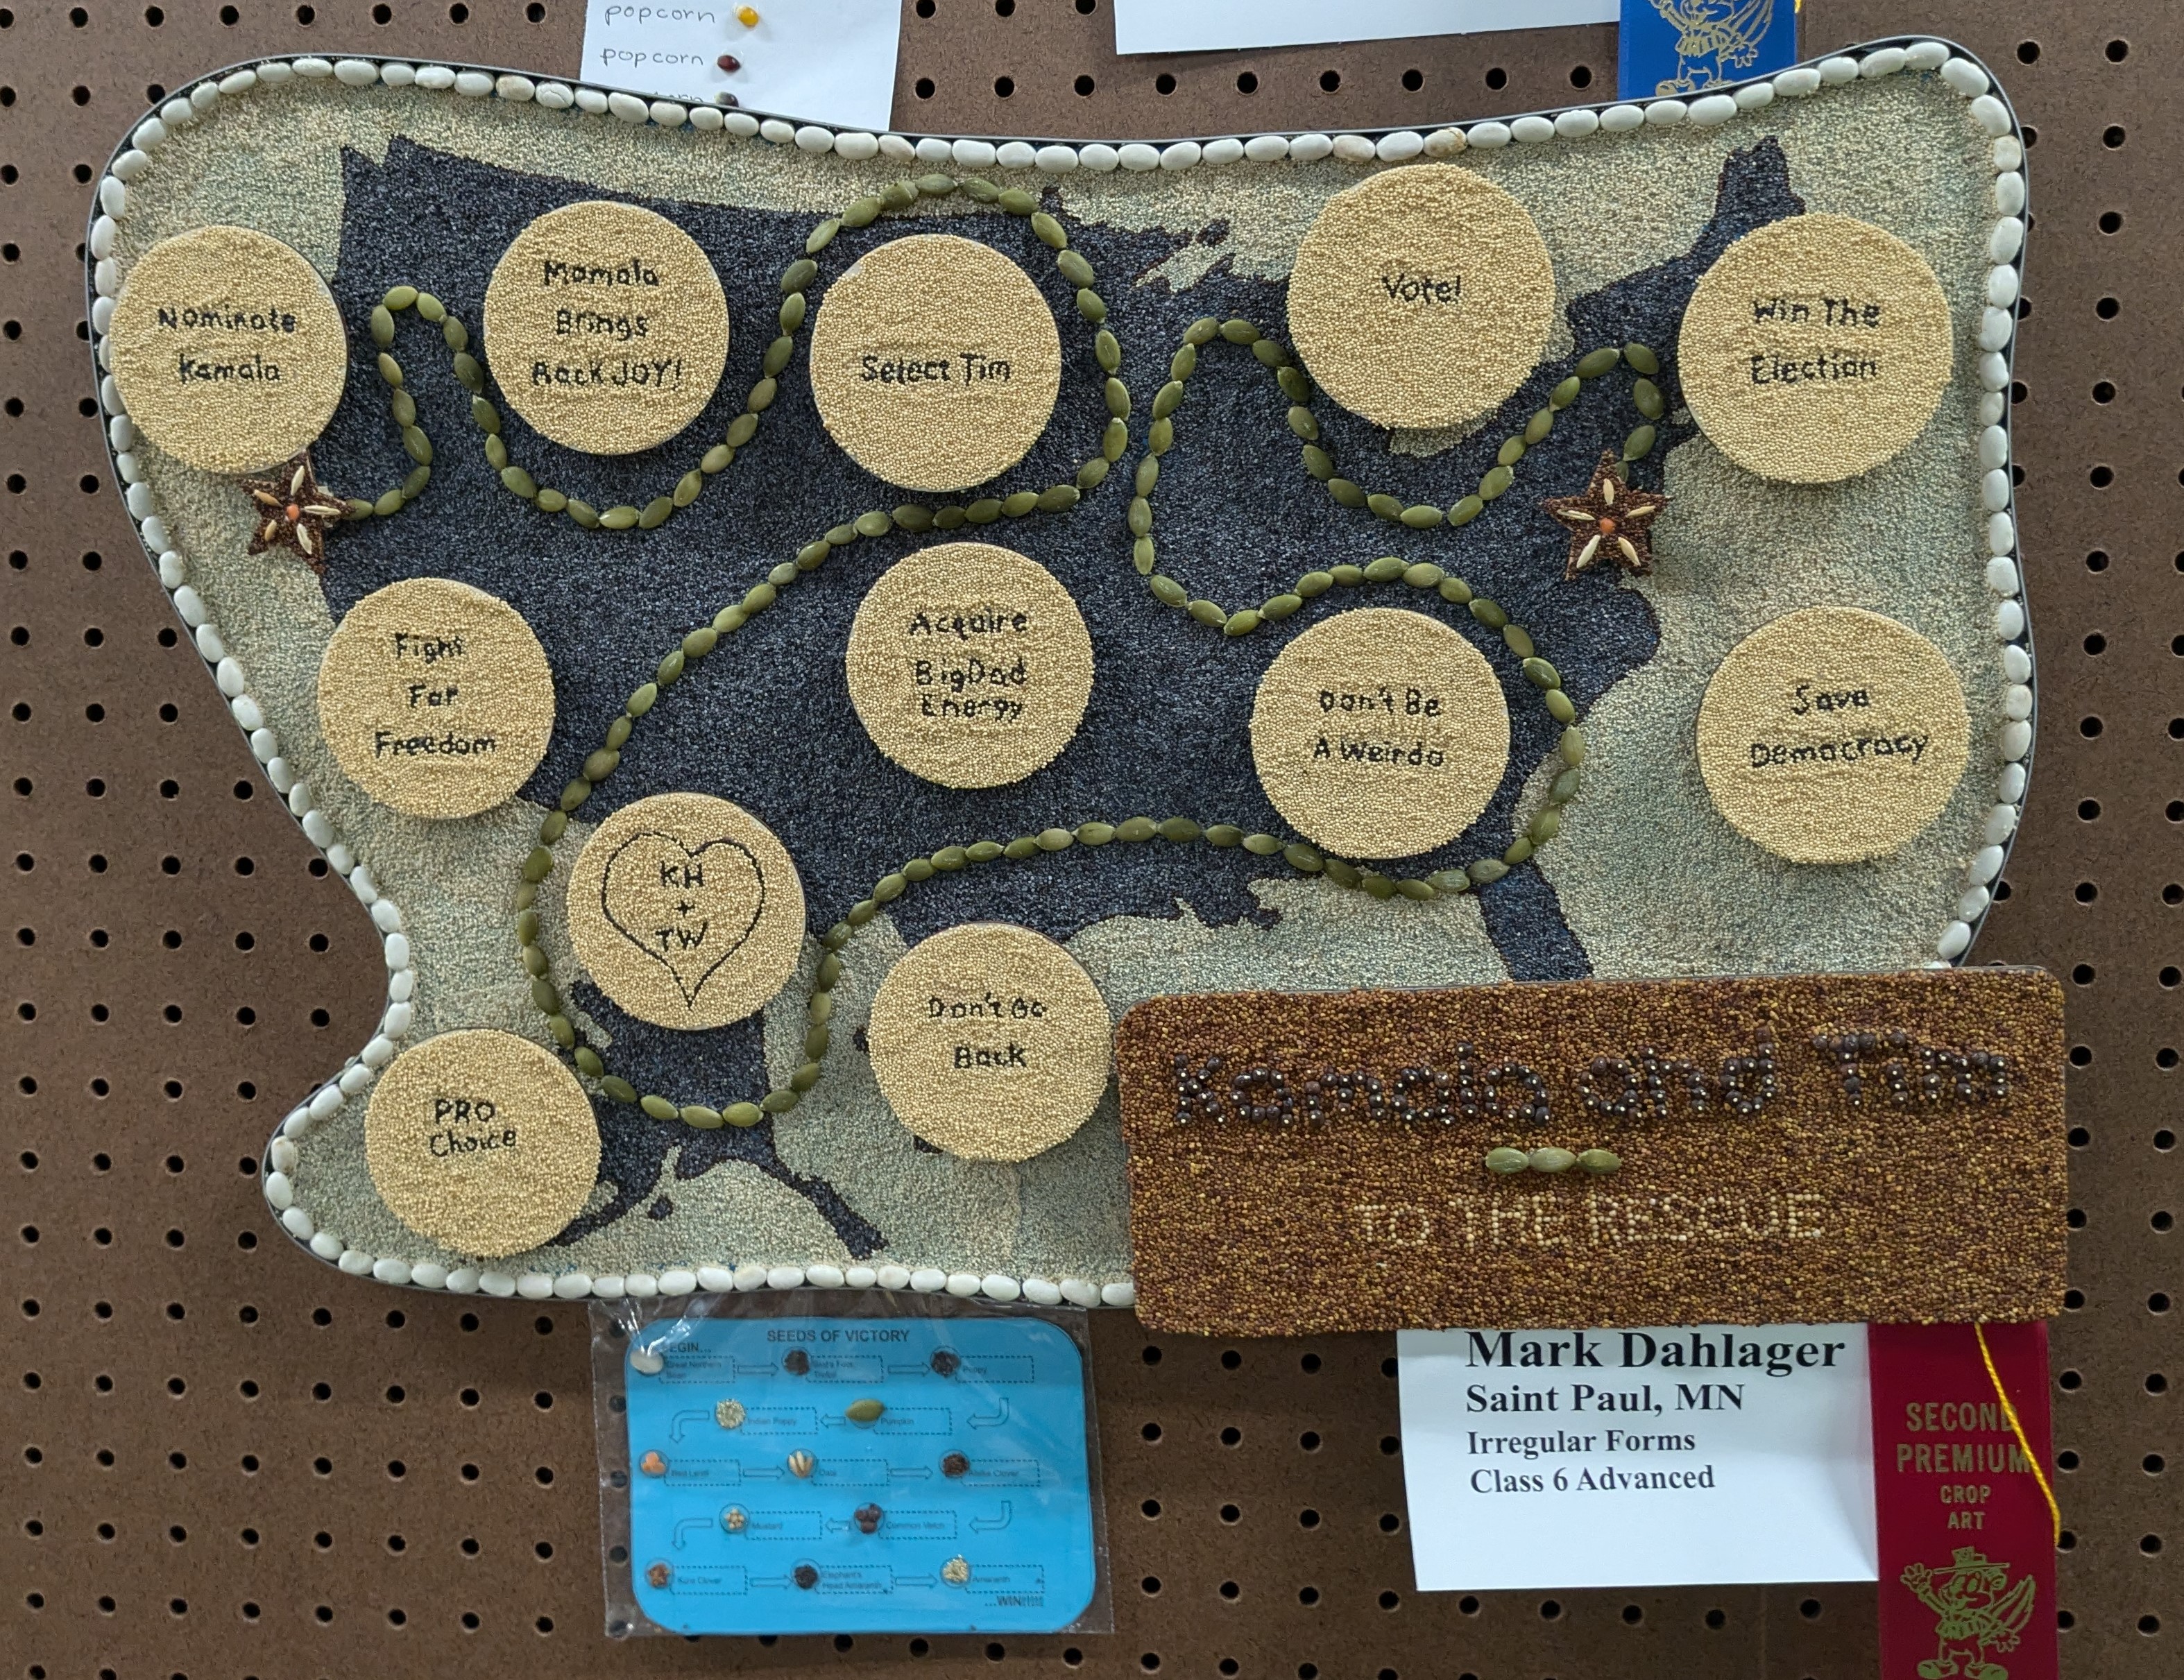 popcorn
popcorn
Nominate
Kamala
Momala
Brings
Back JOY!
Select Tim
Vote!
Win The
Election
Fight
For
Freedom
Acquire
Big Dad
Energy
Don't Be
A Weirdo
Save
Democracy
KH
+
TW
Don't Go
Back
PRO
Choice
Kamala and Tim
TO THE RESCUE
SEEDS OF VICTORY
Great Northern
Bean
Bird's Foot
Trefoil
Poppy
Indian Poppy
Pumpkin
Red Lentil
Oats
Alsike Clover
Mustard
Common Vetch
Kura Clover
Elephant's
Head Amaranth
Amaranth
...WIN!!!!!!
Mark Dahlager
Saint Paul, MN
Irregular Forms
Class 6 Advanced
SECOND
PREMIUM
CROP
ART